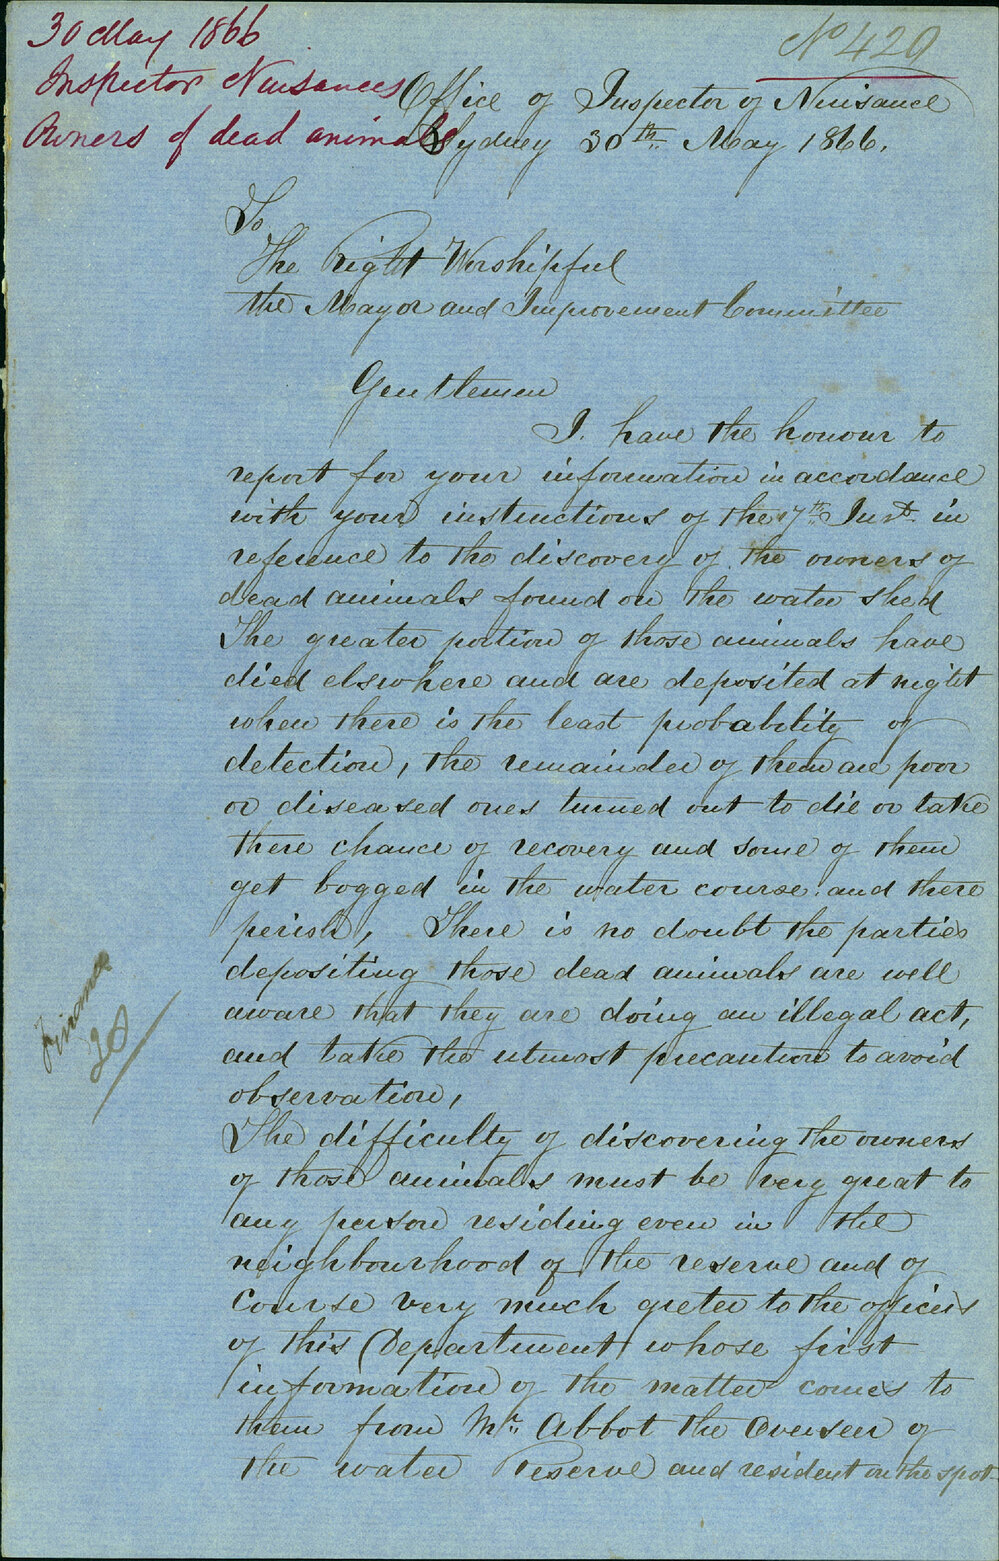 30 May 1866
Inspector Nuisances
Owners of dead animals
No 420
Office of Inspector of Nuisance
Sydney 30th May 1866.
To
The Right Worshipful
the Mayor and Improvement Committee
Gentlemen
I. have the honour to
report for your information in accordance
with your instructions of the 17th Inst. in
reference to the discovery of the owners of
dead animals found on the water shed
The greater portion of those animals have
died elsewhere and are deposited at night
when there is the least probability of
detection, the remainder of them are poor
or diseased ones turned out to die or take
there chance of recovery and some of them
get bogged in the water course and there
perish, There is no doubt the parties
depositing those dead animals are well
aware that they are doing an illegal act,
and take the utmost precaution to avoid
observation,
The difficulty of discovering the owners
of those animals must be very great to
any person residing even in the
neighbourhood of the reserve and of
Course very much greter to the officers
of this Department whose first
information of the matter comes to
them from Mr. Abbot the Overseer of
the water Reserve and resident on the spot-
Finance